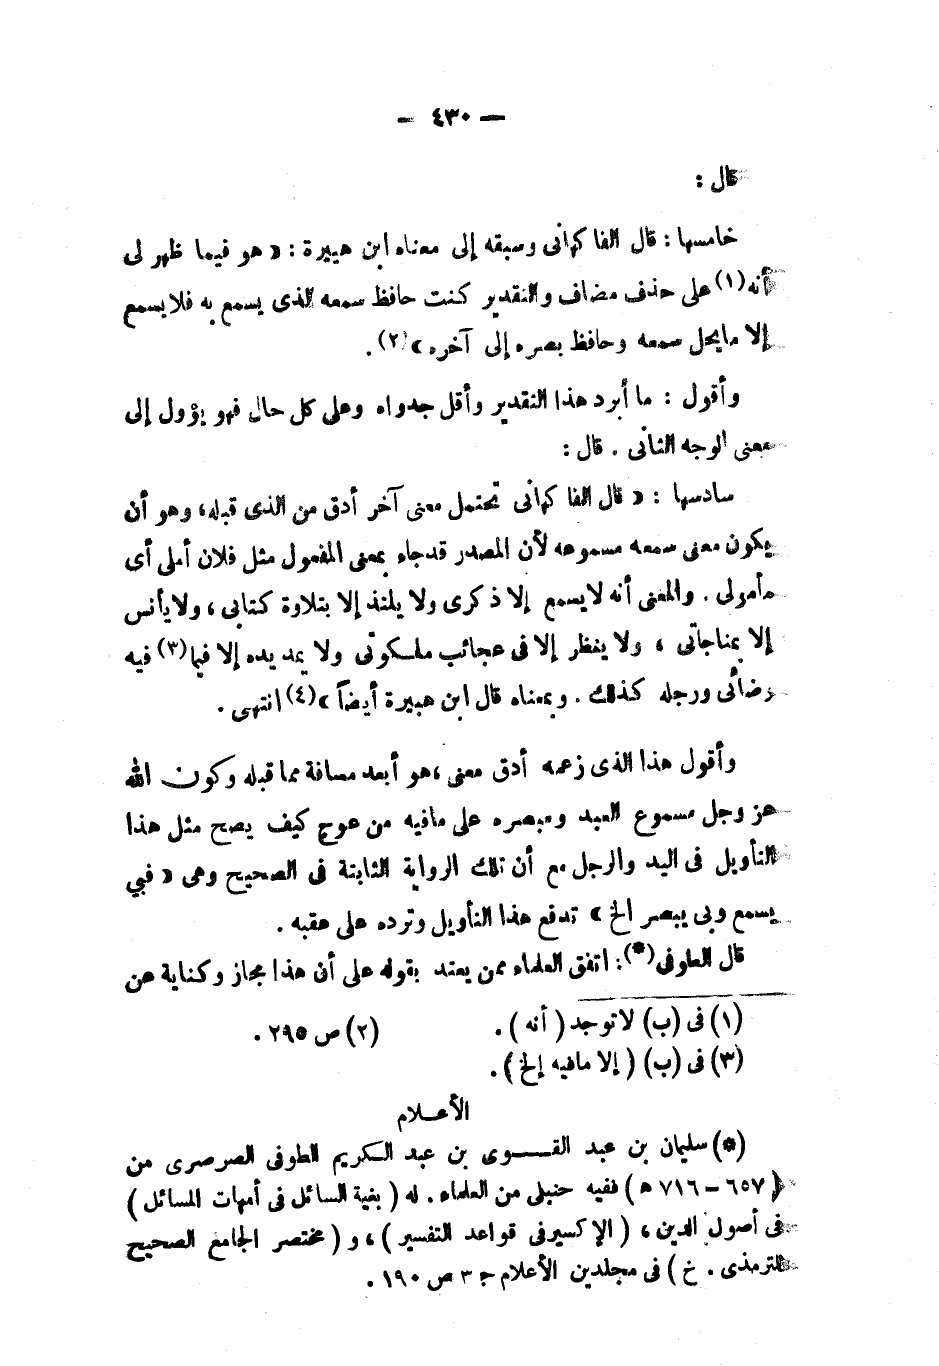 — ٤٣٠ —
قال :
خامسها : قال الفاكهانى وسبقه إلى معناه ابن هبيرة : « هو فيما ظهر لى
أنه (١) على حذف مضاف والتقدير كنت حافظ سمعه الذى يسمع به فلا يسمع
إلا ما يحل سمعه وحافظ بصره إلى آخره » (٢) .
وأقول : ما أبرد هذا التقدير وأقل جدواه وعلى كل حال فهو يؤول إلى
معنى الوجه الثانى . قال :
سادسها : « قال الفاكهانى تحتمل معنى آخر أدق من الذى قبله ، وهو أن
يكون معنى سمعه مسموعه لأن المصدر قد جاء بمعنى المفعول مثل فلان أملى أى
مأمولى . والمعنى أنه لا يسمع إلا ذكرى ولا يلتذ إلا بتلاوة كتابى ، ولا يأنس
إلا بمناجاتى ، ولا ينظر إلا فى عجائب ملكوتى ولا يمد يده إلا فيما (٣) فيه
رضائى ورجله كذلك . وبمعناه قال ابن هبيرة أيضاً » (٤) انتهى .
وأقول هذا الذى زعمه أدق معنى ، هو أبعد مسافة مما قبله وكون الله
عز وجل مسموع العبد ومبصره على مافيه من عوج كيف يصح مثل هذا
التأويل فى اليد والرجل مع أن تلك الرواية الثابتة فى الصحيح وهى « فبي
يسمع وبى يبصر الخ » تدفع هذا التأويل وترده على عقبه .
قال الطوفى (*) : اتفق العلماء ممن يعتد بقوله على أن هذا مجاز وكناية عن
(١) فى (ب) لا توجد ( أنه ) . (٢) ص ٢٩٥ .
(٣) فى (ب) ( إلا مافيه إلخ ) .
الأعـلام
(*) سليمان بن عبد القــوى بن عبد الكريم الطوفى الصرصرى من
( ٦٥٧ – ٧١٦ هـ ) فقيه حنبلى من العلماء . له ( بغية السائل فى أمهات المسائل )
فى أصول الدين ، ( الإكسير فى قواعد التفسير ) ، و ( مختصر الجامع الصحيح
للترمذى . خ ) فى مجلدين الأعلام جـ ٣ ص ١٩٠ .